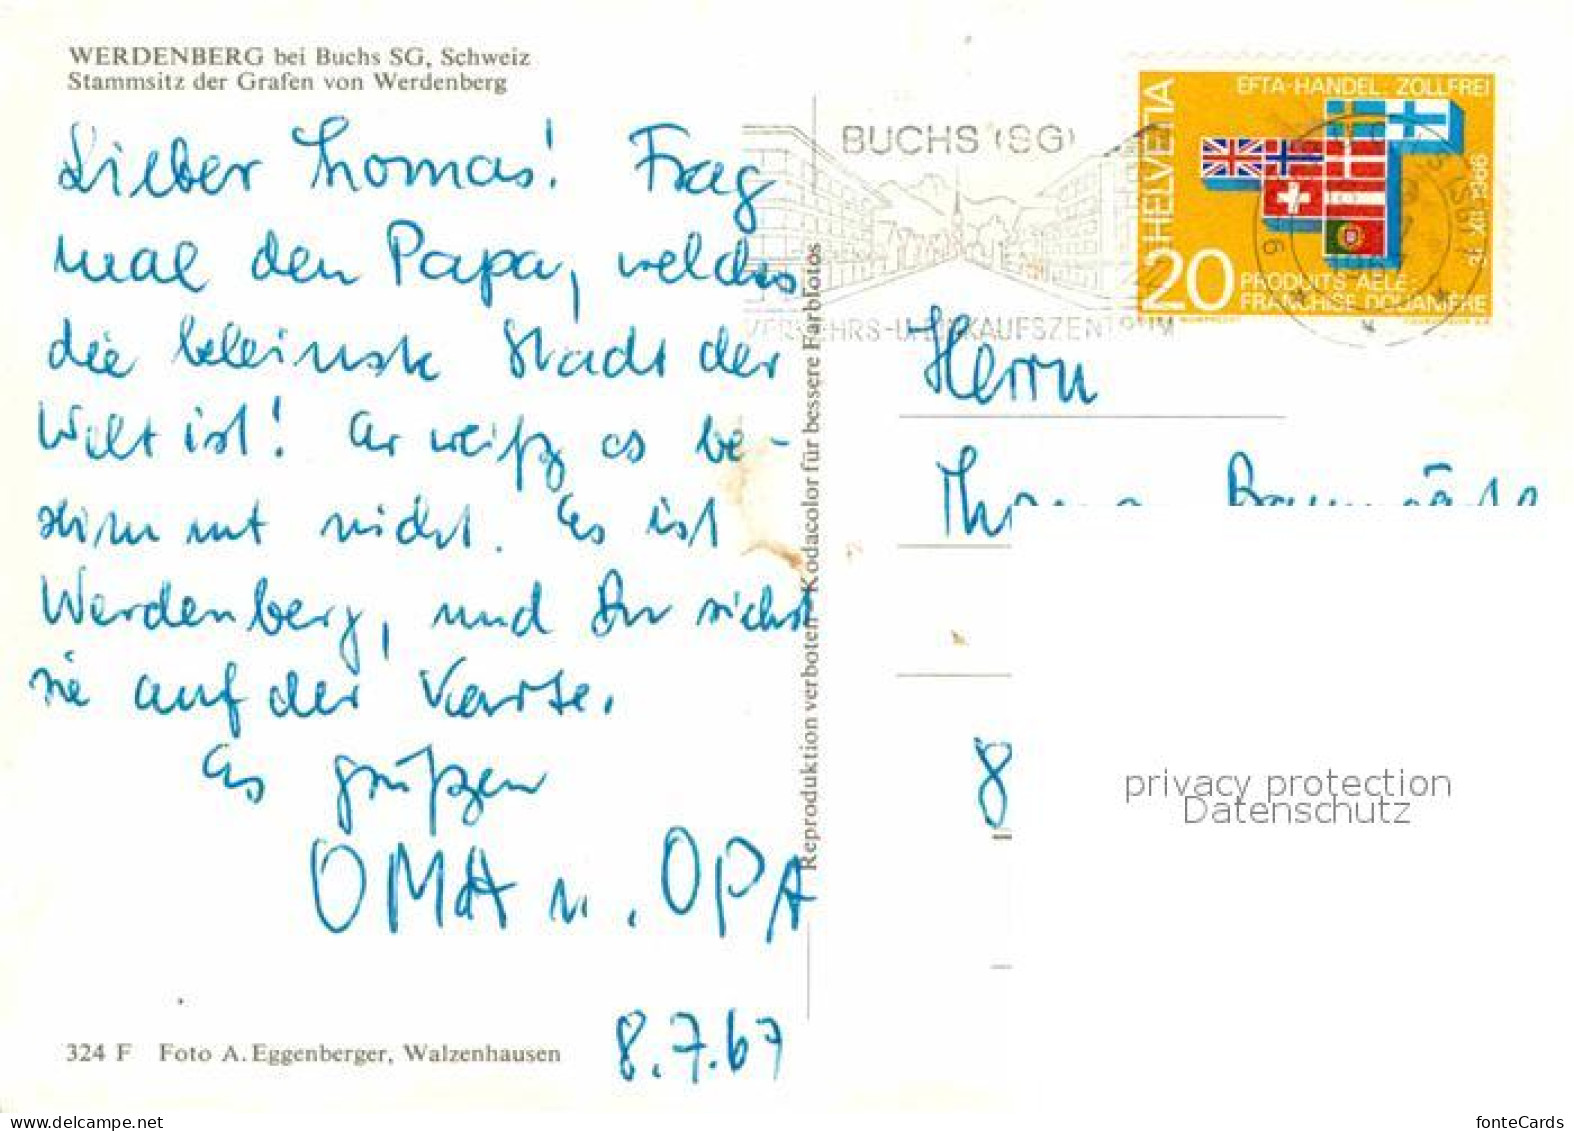 WERDENBERG bei Buchs SG, Schweiz
Stammsitz der Grafen von Werdenberg
Lieber Thomas! Frag
mal den Papa, welches
die kleinste Stadt der
Welt ist! Er weiß es be-
stimmt nicht. Es ist
Werdenberg, und Du siehst
sie auf der Karte.
Es grüßen
OMA u. OPA
8.7.67
324 F Foto A. Eggenberger, Walzenhausen
Reproduktion verboten - Kodacolor für bessere Farbfotos
BUCHS (SG)
VERKEHRS- U. EINKAUFSZENTRUM
HELVETIA
EFTA-HANDEL ZOLLFREI
31. XII. 1966
20
PRODUITS AELE
FRANCHISE DOUANIERE
Herrn
8
privacy protection
Datenschutz
www.delcampe.net
fonteCards